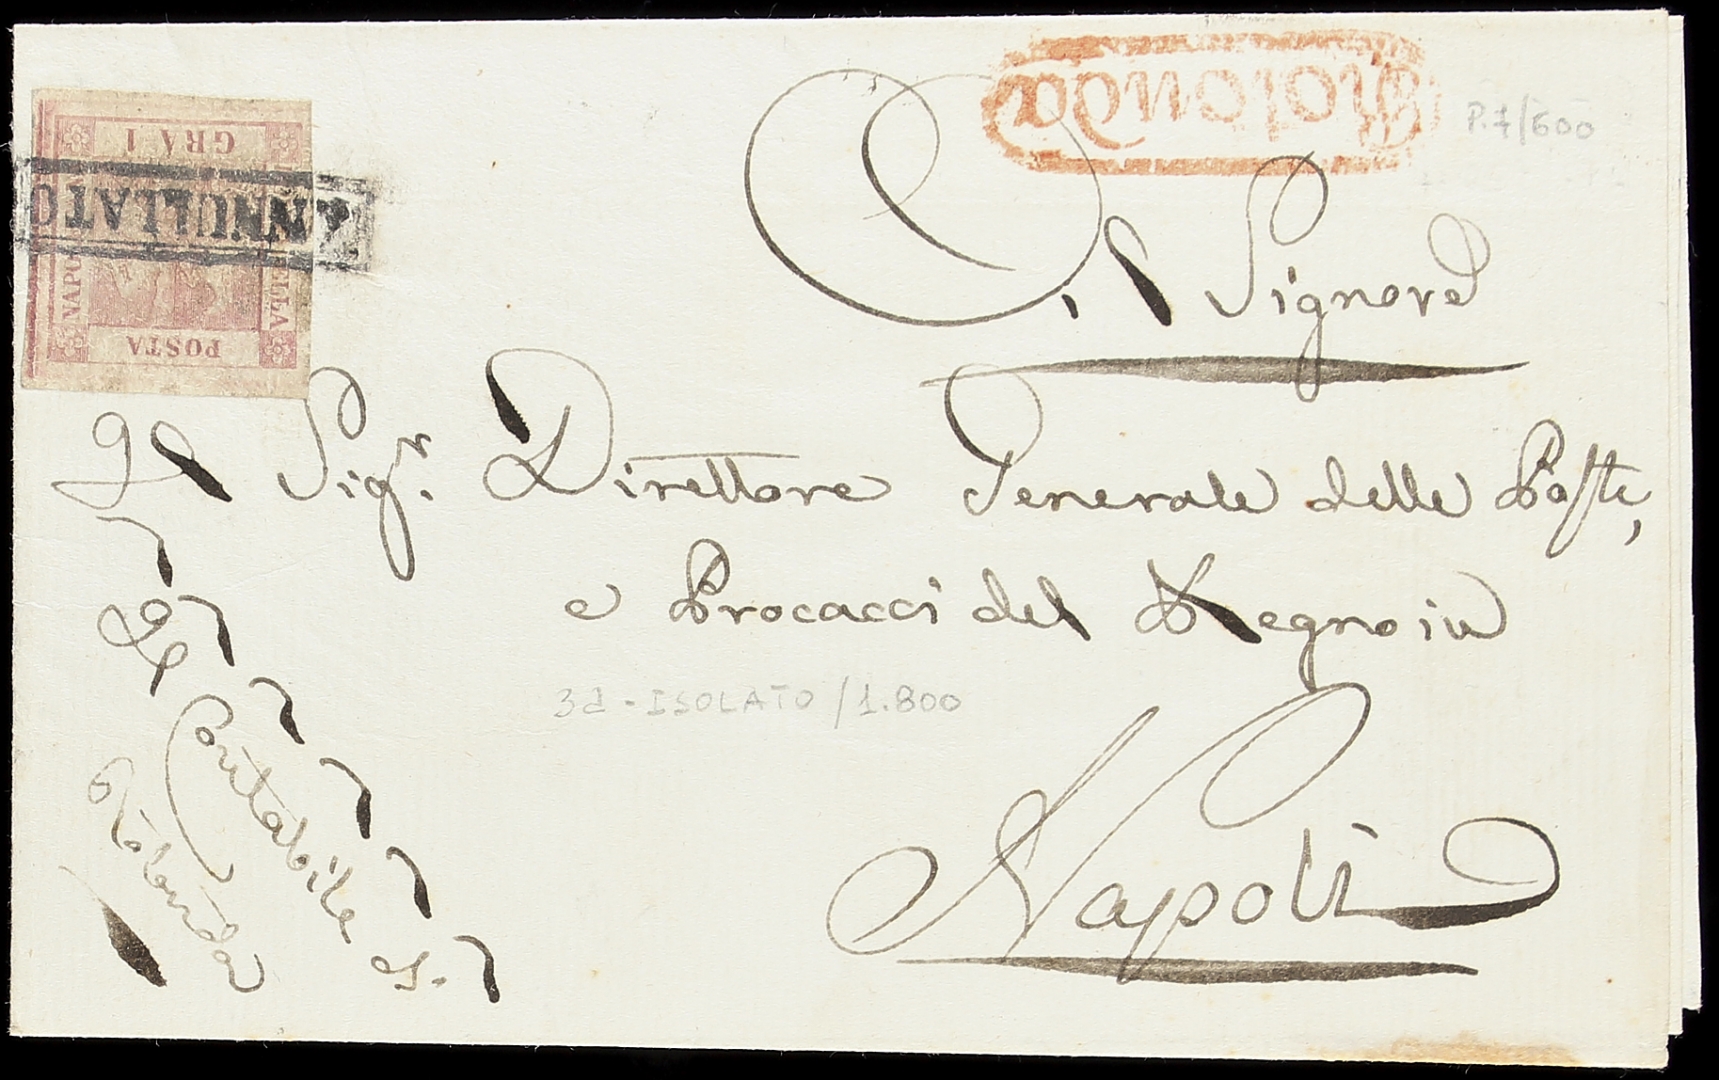 GRA 1
ANNULLATO
NAPO
POSTA
Rotonda
P.7/600
Al Signore
Il Sig.r Direttore Generale delle Poste,
e Procacci del Regno in
3d - ISOLATO / 1.800
Napoli
Il Contabile
Rotonda